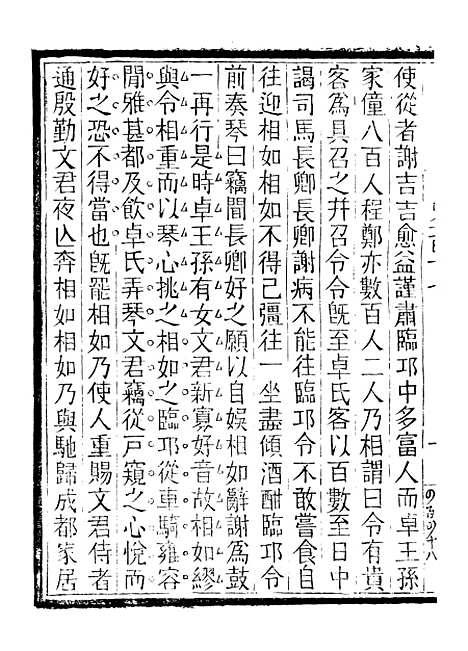 使從者謝吉吉愈益謹肅臨邛中多富人而卓王孫
家僮八百人程鄭亦數百人二人乃相謂曰令有貴
客爲具召之并召令令旣至卓氏客以百數至日中
謁司馬長卿長卿謝病不能往臨邛令不敢嘗食自
往迎相如相如不得已彊往一坐盡傾酒酣臨邛令
前奏琴曰竊聞長卿好之願以自娛相如辭謝爲鼓
一再行是時卓王孫有女文君新寡好音故相如繆
與令相重而以琴心挑之相如之臨邛從車騎雍容
閒雅甚都及飮卓氏弄琴文君竊從戶窺之心悅而
好之恐不得當也旣罷相如乃使人重賜文君侍者
通殷勤文君夜亾奔相如相如乃與馳歸成都家居